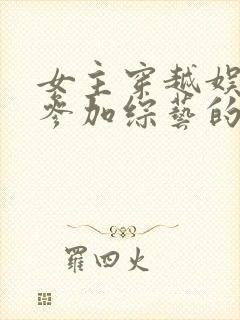 女主穿越娱
参加综艺的
罗四火